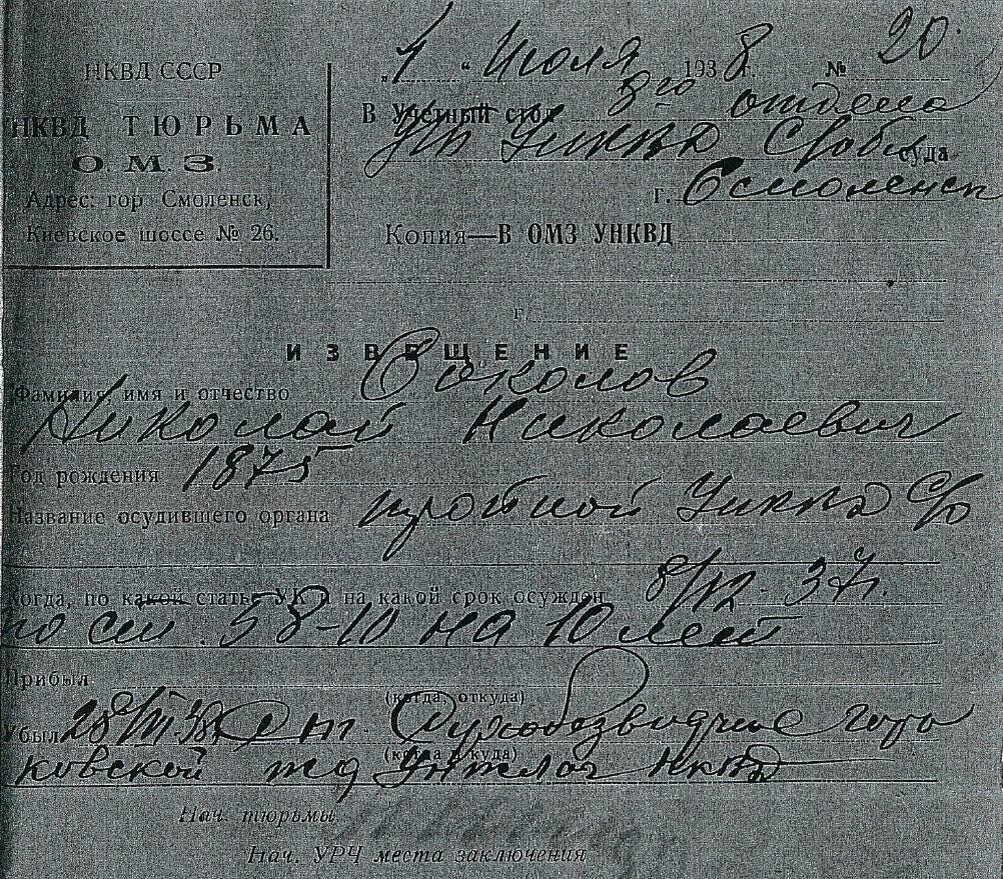 НКВД СССР
НКВД ТЮРЬМА
О. М. З.
Адрес: гор Смоленск,
Киевское шоссе № 26.
„1" Июля 1938 г. № 20.
В Учетный стол 8го отдела
УНКВД С/обл суда
г. Смоленск
Копия—В ОМЗ УНКВД
г.
ИЗВЕЩЕНИЕ
Фамилия, имя и отчество Соколов
Николай Николаевич
Год рождения 1875
Название осудившего органа тройкой УНКВД С/о
Когда, по какой статье УК и на какой срок осужден 8/XII-37г.
по ст. 58-10 на 10 лет
Прибыл
(когда, откуда)
Убыл 28/III 38 ст. Сухобезводное Горь
(когда и куда)
ковской жд Унжлаг НКВД
Нач. тюрьмы
Нач. УРЧ места заключения